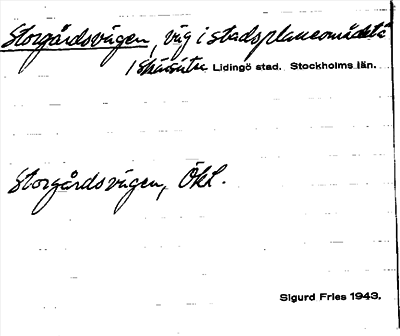 Storgårdsvägen, väg i stadsplaneområdet
i Skärsätra Lidingö stad. Stockholms län.
Storgårdsvägen, Ökl.
Sigurd Fries 1943.